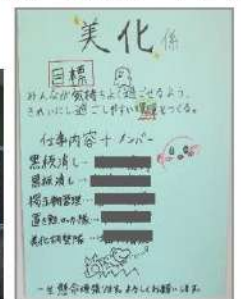 美化係
目標
みんなが気持ちよく過ごせるよう、
きれいにし過ごしやすい環境をつくる。
仕事内容+メンバー
黒板消し…
黒板消し…
掃主朝管理…
置き勉
美化
一生懸命頑張ります。よろしくお願いします。